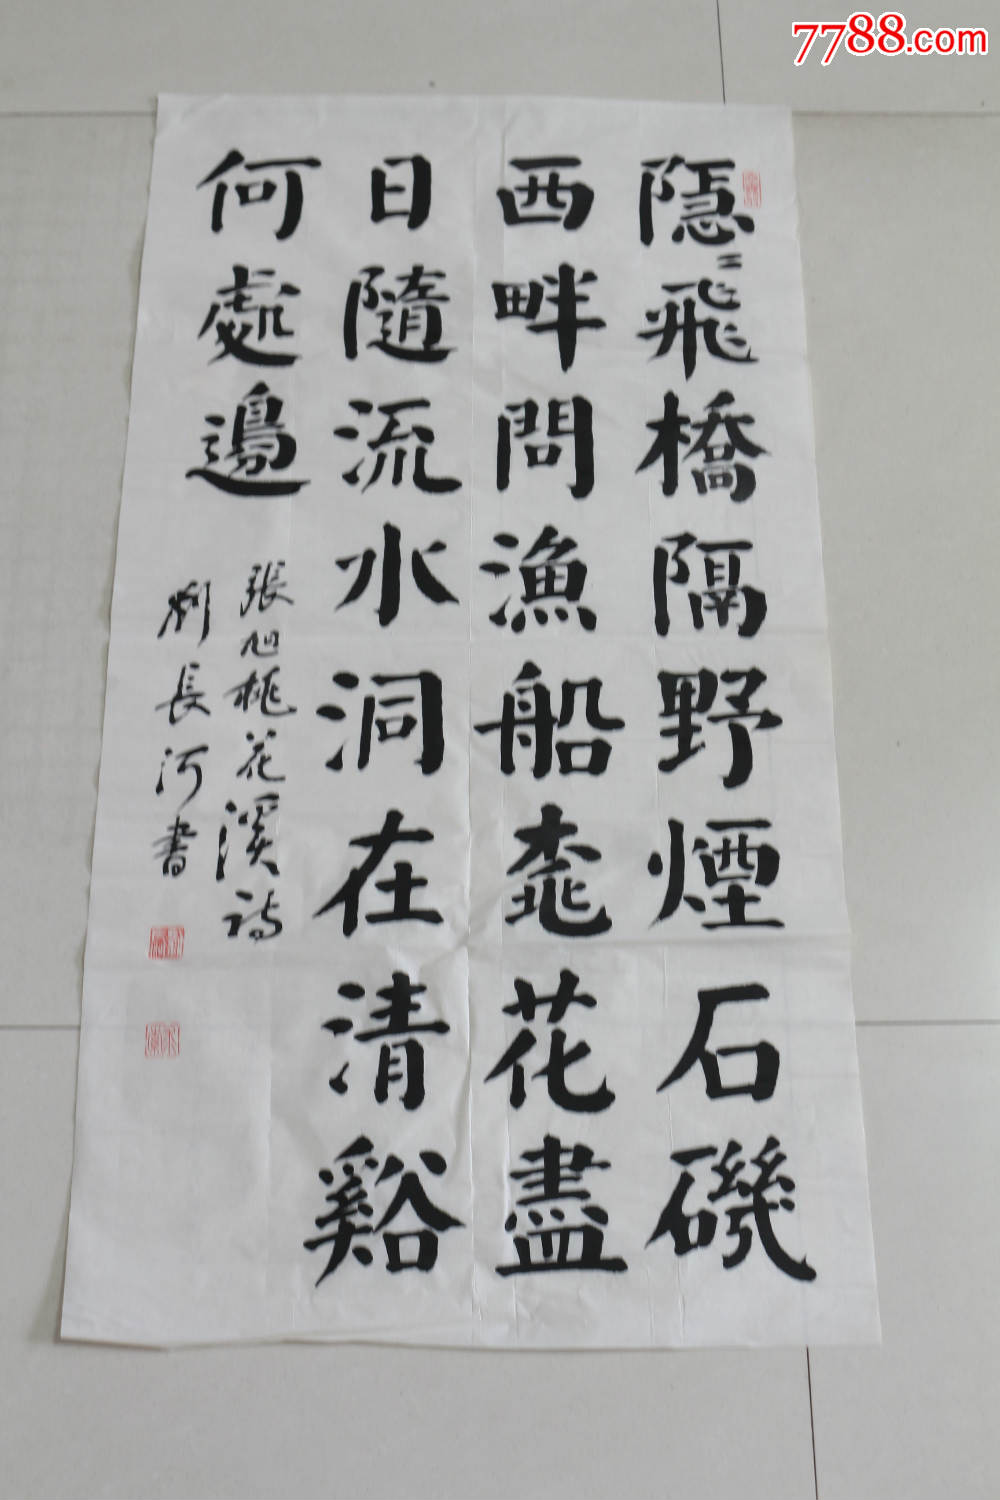 隱〻飛橋隔野煙石磯
西畔問漁船桃花盡
日隨流水洞在清谿
何處邊
張旭桃花溪詩
劉長河書
7788.com